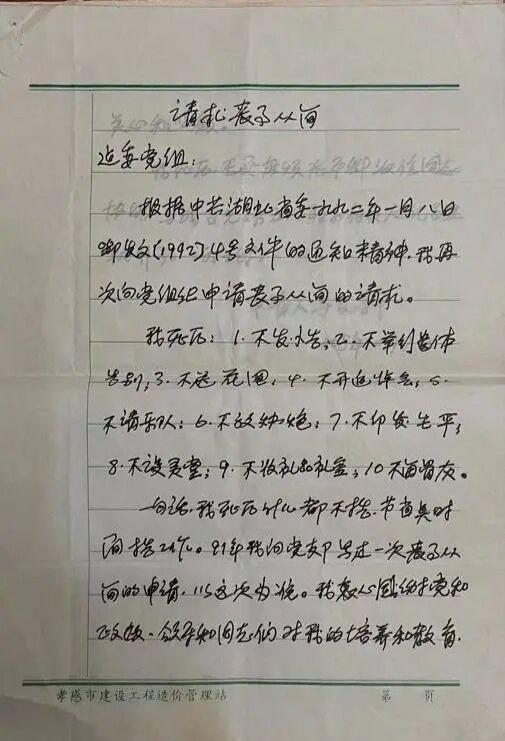 请求丧事从简
建委党组：
根据中共湖北省委一九九二年一月八日
鄂发文(1992)4号文件的通知精神，我再
次向党组织申请丧事从简的请求。
我死后：1.不发讣告；2.不举行遗体
告别；3.不送花圈；4.不开追悼会；5.
不请乐队；6.不放炮；7.不印发生平；
8.不设灵堂；9.不收礼品礼金；10不留骨灰。
一句话，我死后什么都不搞，节省其时
间搞工作。91年我向党支部写过一次丧事从
简的申请，以这次为准。我衷心感谢党和
政府、领导和同志们对我的培养和教育。
孝感市建设工程造价管理站
第 页